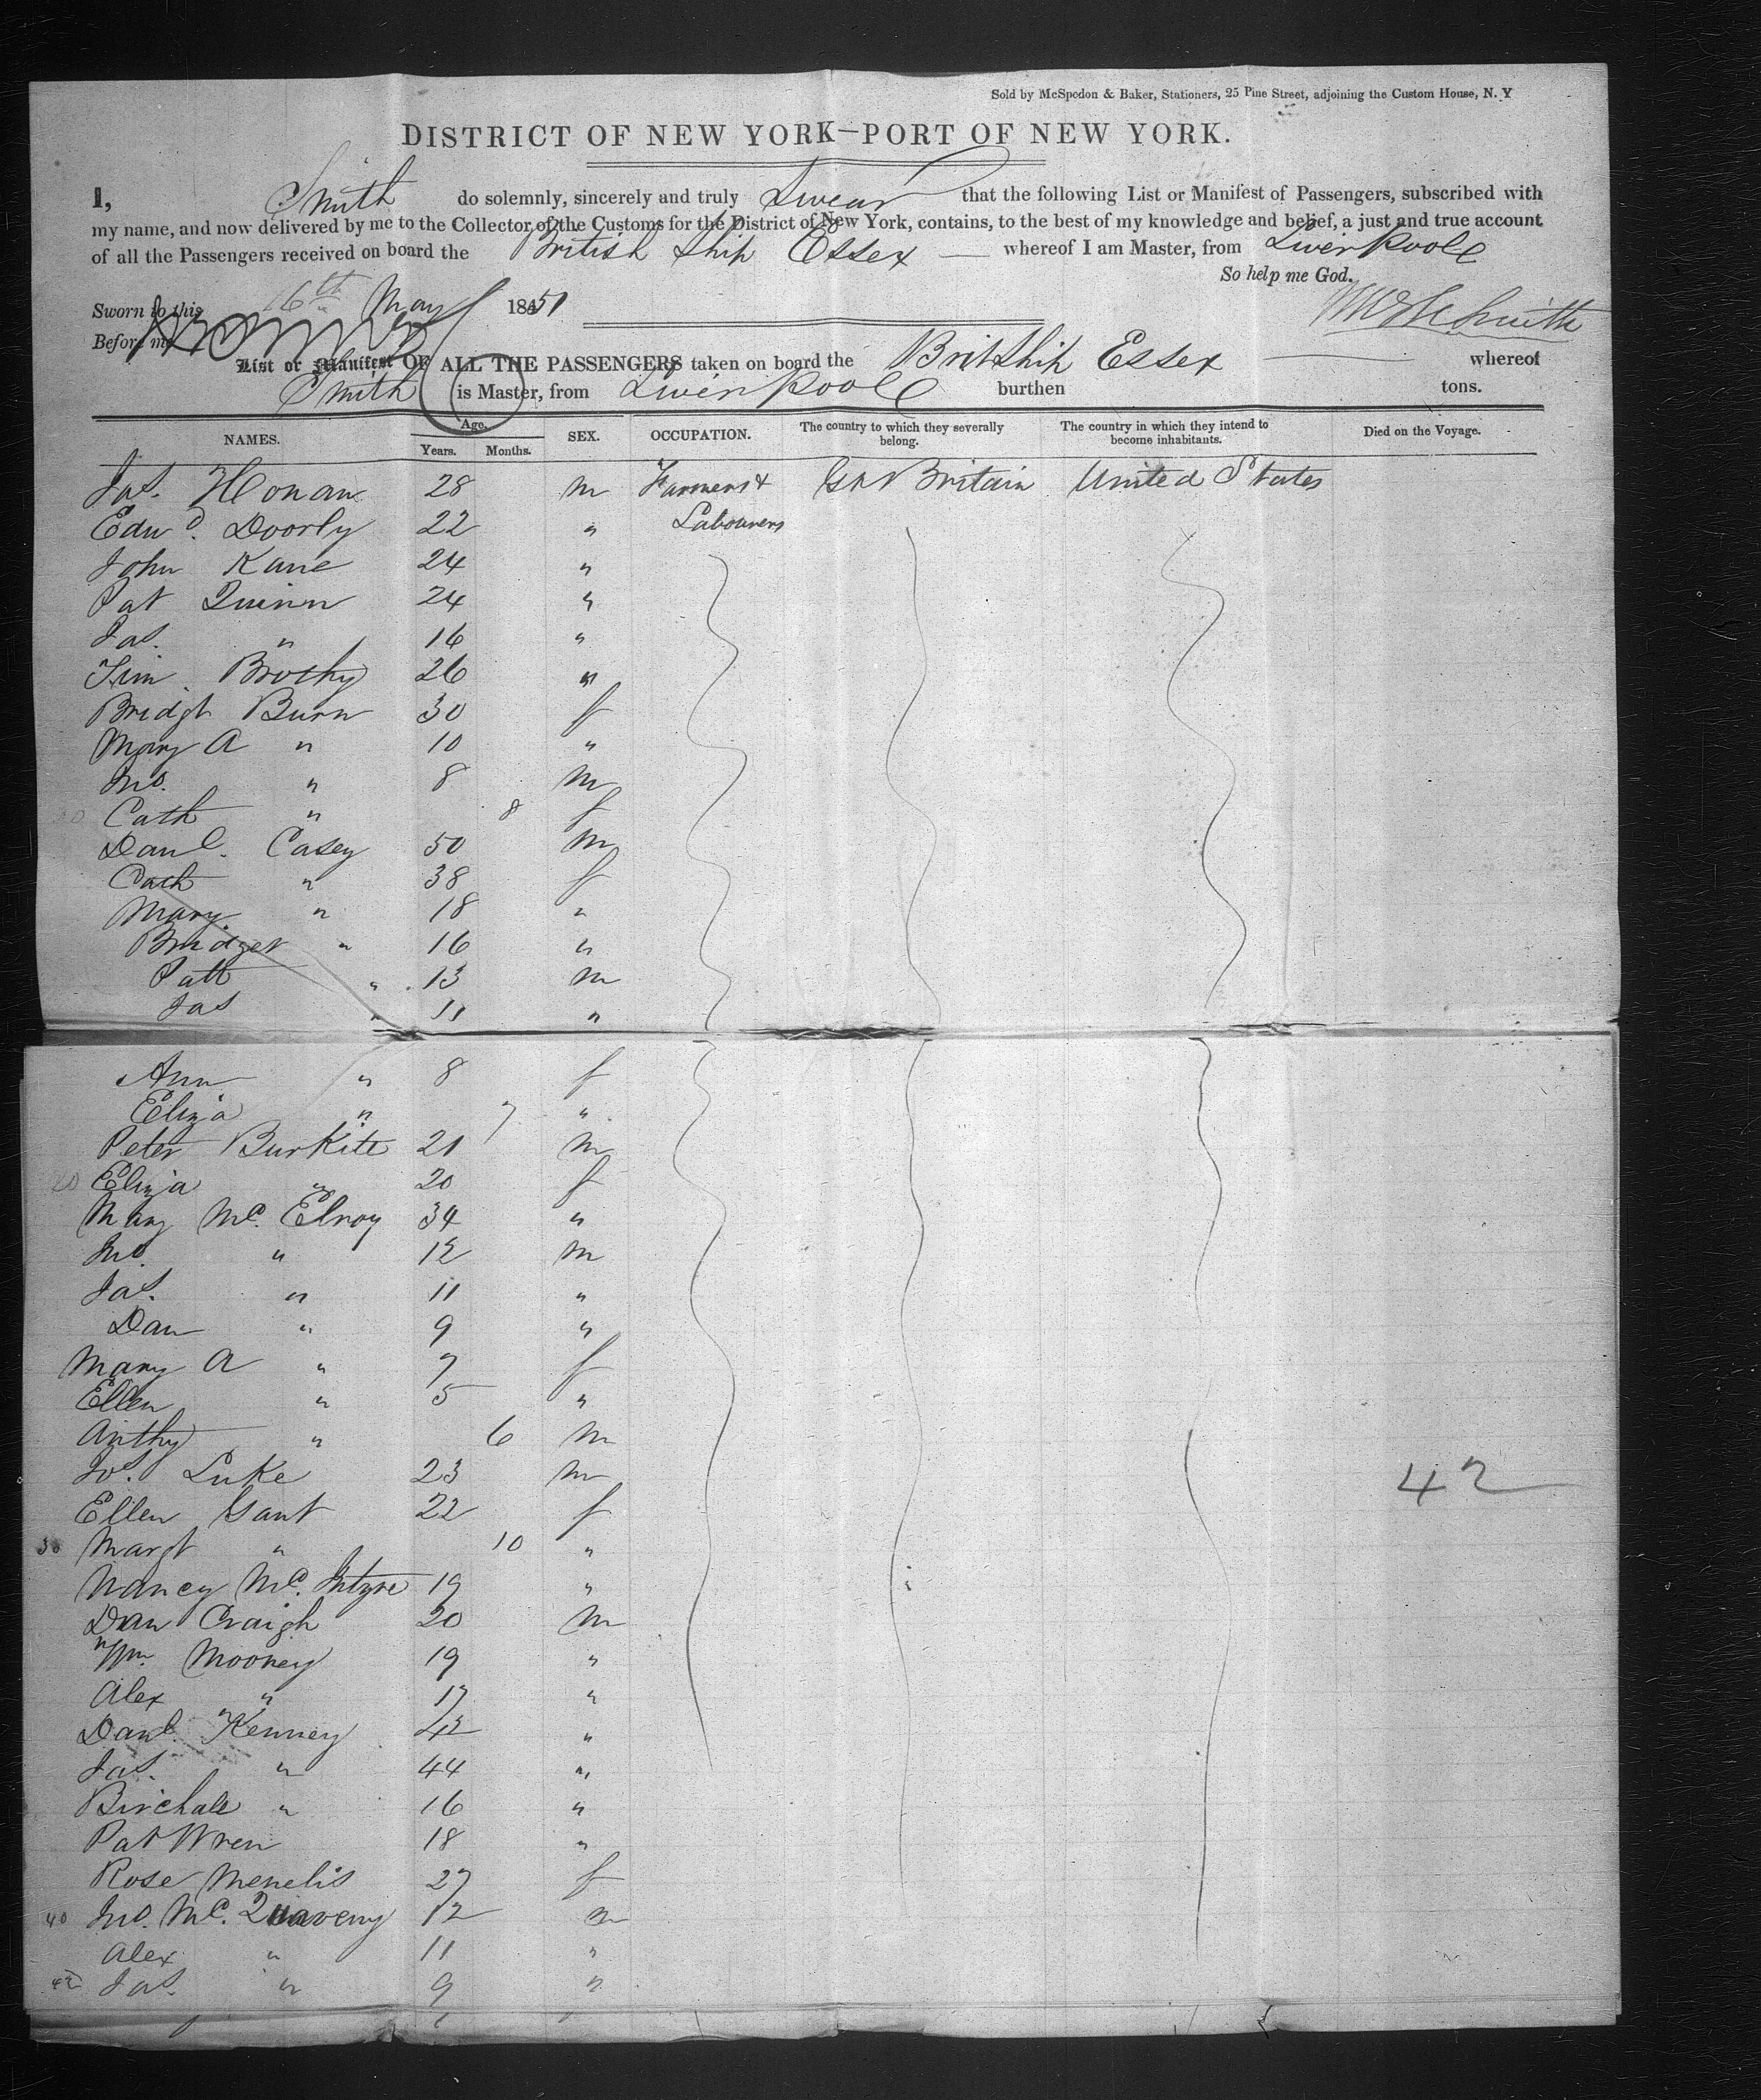 Sold by McSpedon & Baker, Stationers, 25 Pine Street, adjoining the Custom House, N. Y
DISTRICT OF NEW YORK—PORT OF NEW YORK.
I, Smith do solemnly, sincerely and truly Swear that the following List or Manifest of Passengers, subscribed with
my name, and now delivered by me to the Collector of the Customs for the District of New York, contains, to the best of my knowledge and belief, a just and true account
of all the Passengers received on board the British Ship Essex — whereof I am Master, from Liverpool
So help me God.
Sworn to this 16th May 1851
Smith
Before me
List or Manifest OF ALL THE PASSENGERS taken on board the Brit Ship Essex whereof
Smith is Master, from Liverpool burthen tons.
NAMES. Age. Years. Months. SEX. OCCUPATION. The country to which they severally belong. The country in which they intend to become inhabitants. Died on the Voyage.
Jas. Honan 28 m Farmers & Gt Britain United States
Edwd. Doorly 22 " Labourers
John Kane 24 "
Pat Quinn 24 "
Jas. " 16 "
Tim Brothy 26 "
Bridgt Burn 30 f
Mary A " 10 "
Jno. " 8 m
10 Cath " 8 f
Danl. Casey 50 m
Cath " 38 f
Mary " 18 "
Bridget " 16 "
Patt " 13 m
Jas " 11 "
Ann " 8 f
Eliza " 7 "
Peter Burkite 21 m
20 Eliza " 20 f
Mary Mc. Elroy 34 "
Jno. " 12 m
Jas. " 11 "
Dan " 9 "
Mary A " 7 f
Ellen " 5 "
Anthy " 6 m
Jos. Luke 23 m
Ellen Gant 22 f
30 Margt " 10 "
Nancy Mc. Intyre 19 "
Dan Craigh 20 m
Wm. Mooney 19 "
Alex " 17 "
Danl. Kenney 42 "
Jas. " 44 "
Birchall " 16 "
Pat Wren 18 "
Rose Menelis 27 f
40 Jno. Mc. Quaveny 12 m
Alex " 11 "
42 Jas. " 9 "
42